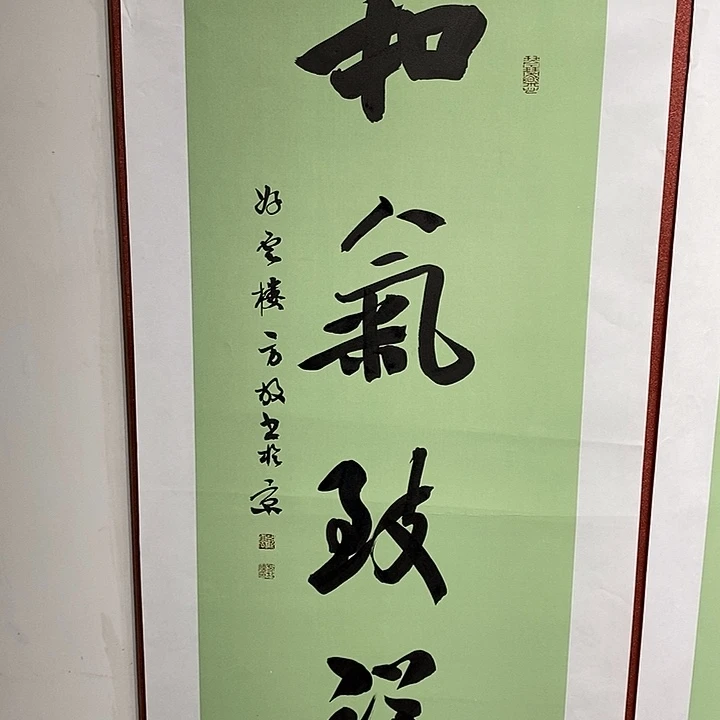 和氣致祥
好雲樓方放书於京